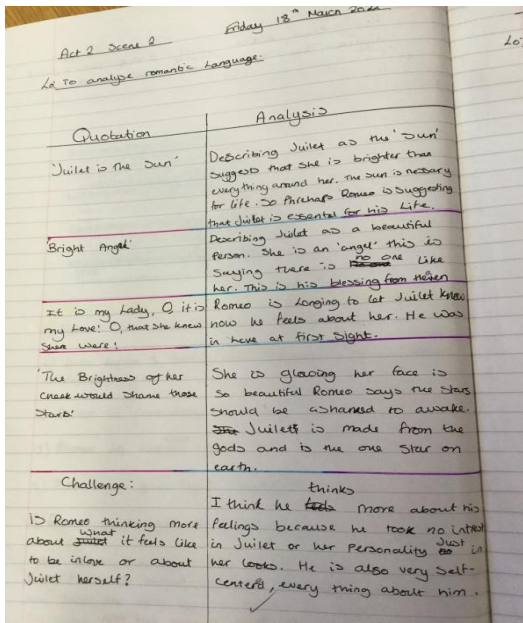 Friday 18th March 202
Act 2 Scene 2
Lo: To analyse romantic language.
Lo:
Quotation
Analysis
'Juilet is the sun'
Describing Juilet as the 'sun'
suggests that she is brighter than
everything around her. The sun is nessary
for life. So Phrehaps Romeo is suggesting
that Juilet is essental for his life.
'Bright Angel'
Describing Juilet as a beautiful
Person. She is an 'angel' this is
Saying there is no one like
her. This is his blessing from heaven
It is my Lady, O, it is
my Love! O, that she knew
she were!
Romeo is longing to let Juilet know
how he feels about her. He was
in love at first sight.
'The Brightness of her
cheek would shame those
stars'
She is glowing her face is
so beautiful Romeo says the stars
should be ashamed to awake.
Juilet is made from the
gods and is the one star on
earth.
Challenge:
Is Romeo thinking more
about what it feels like
to be in love or about
Juilet herself?
I think he thinks more about his
feelings because he took no intrest
in Juilet or her personality Just in
her looks. He is also very self-
centerd, every thing about him.